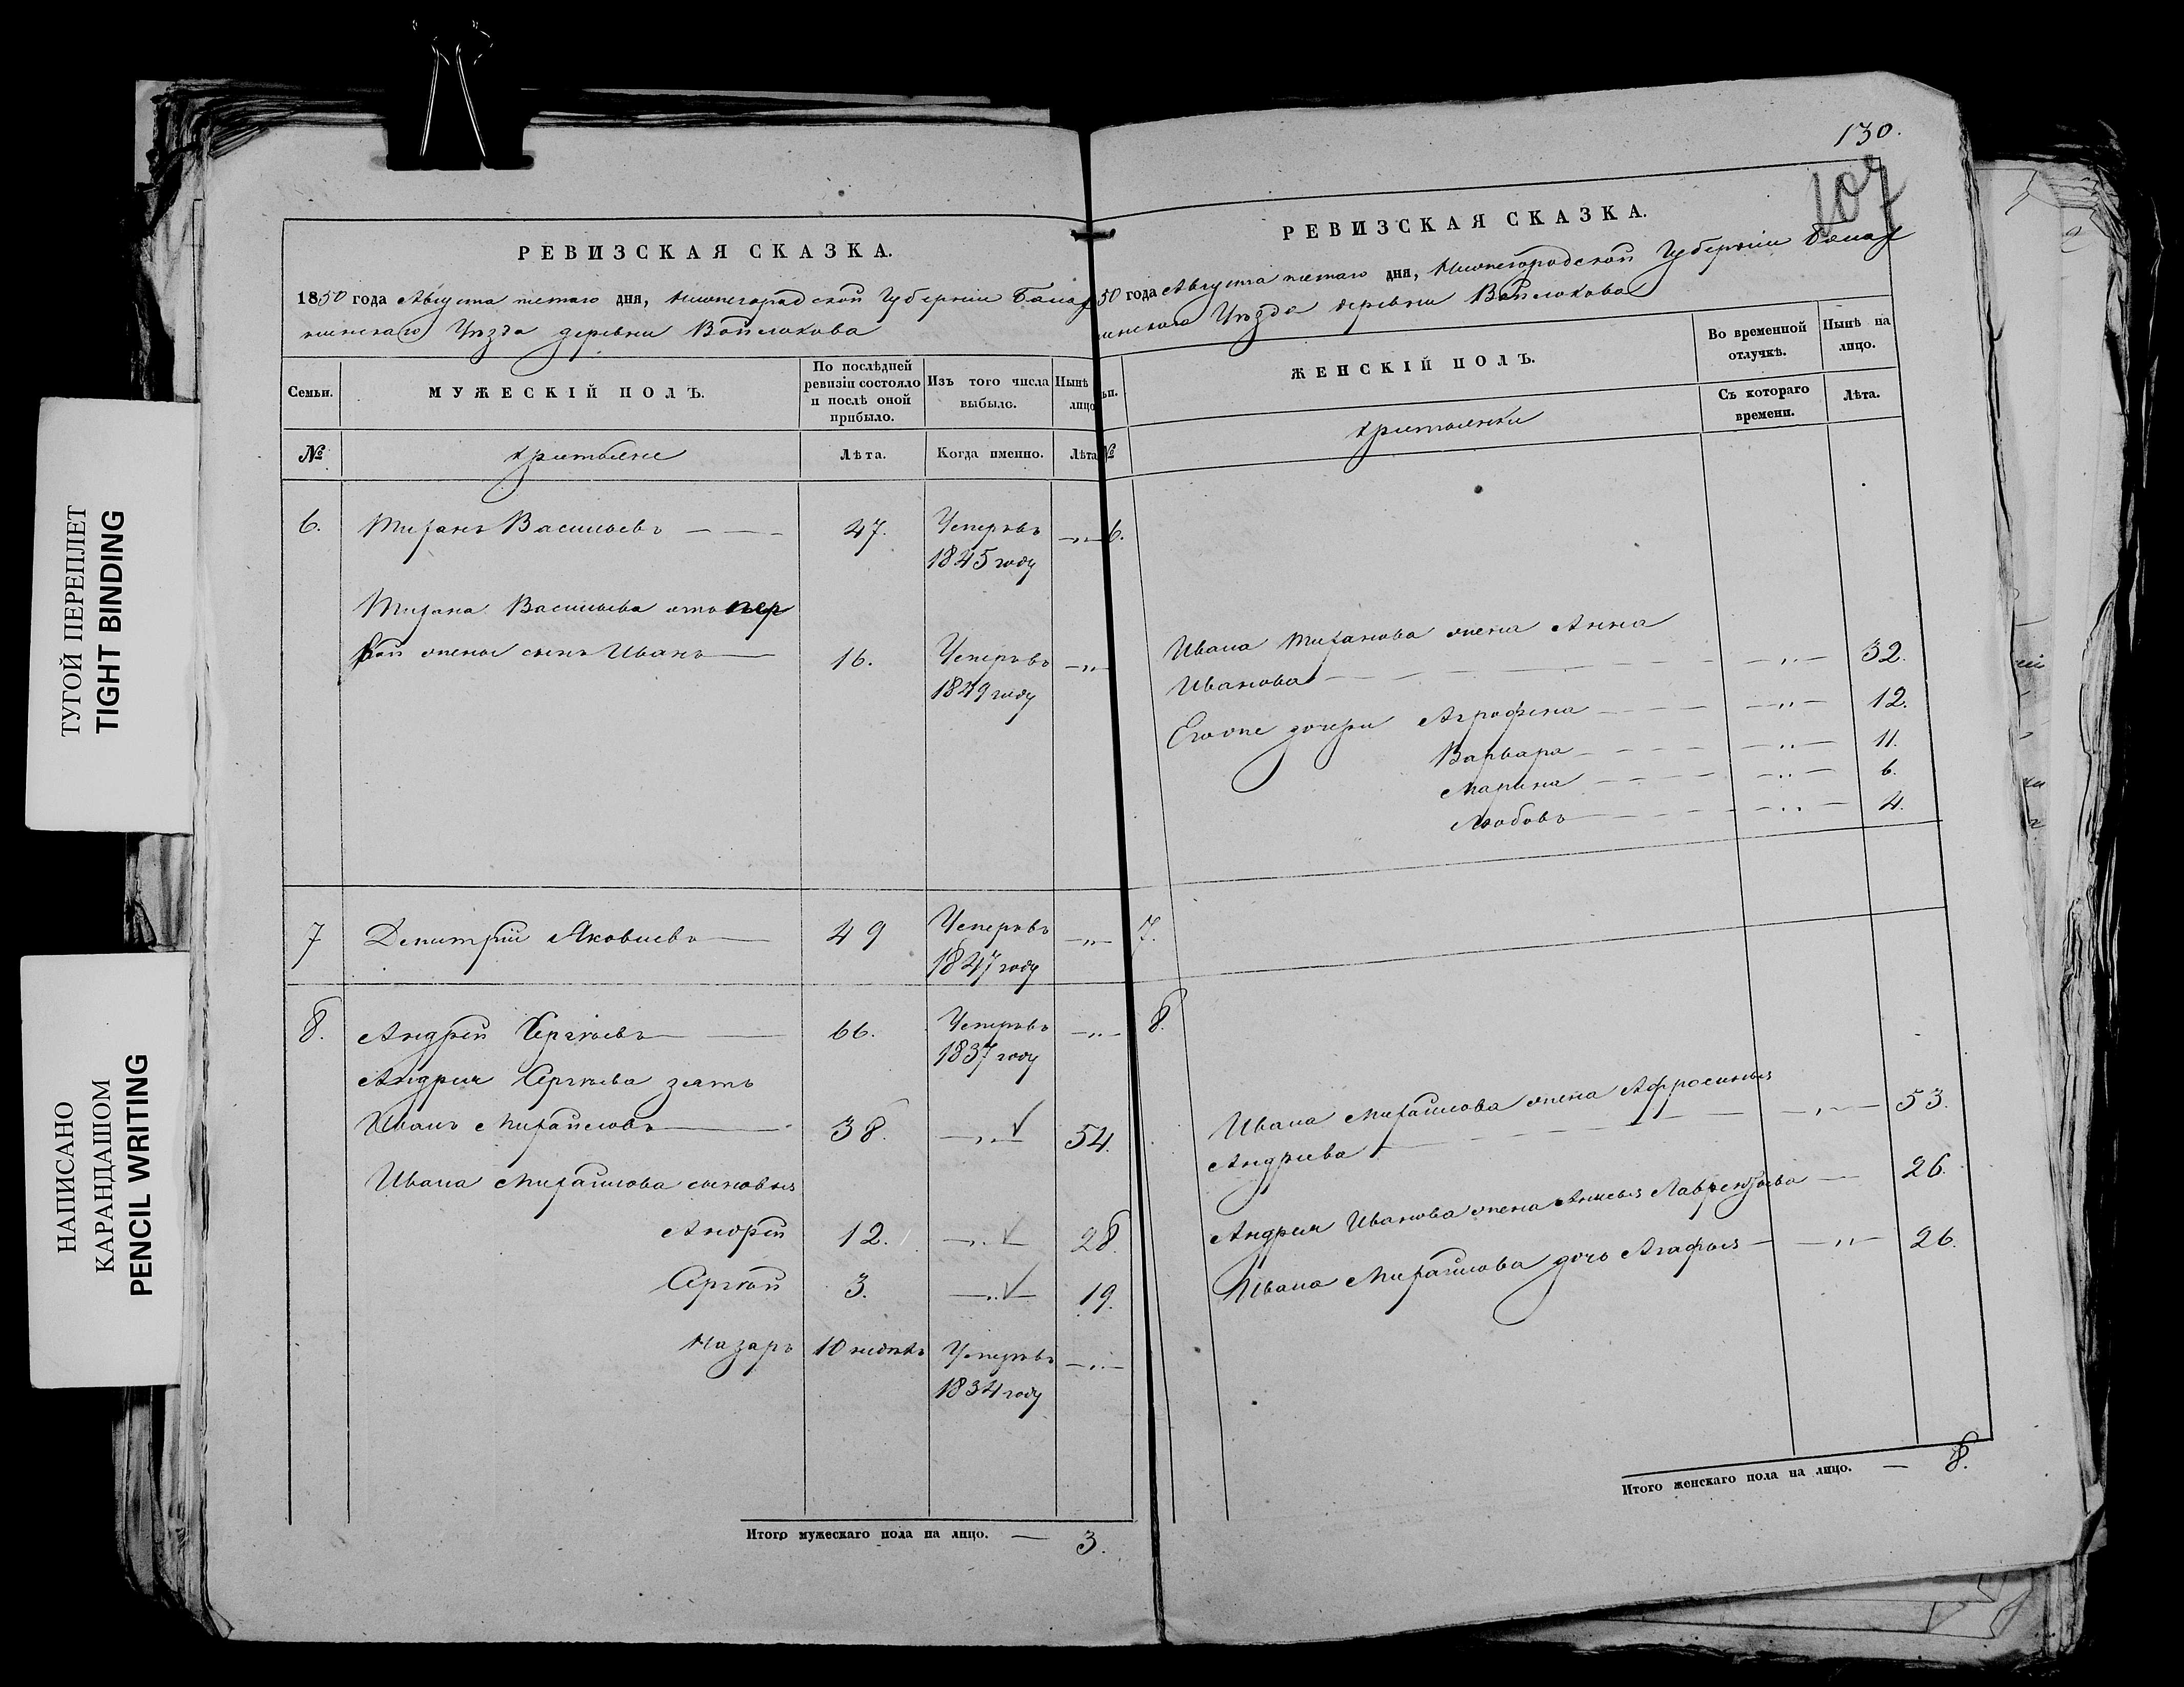 130.
107
РЕВИЗСКАЯ СКАЗКА.
1850 года Августа пятаго дня, Нижегородской Губернии Балах
нинскаго Уѣзда деревни Войлокова
Семьи.
МУЖЕСКІЙ ПОЛЪ.
По послѣдней ревизіи состояло и послѣ оной прибыло.
Изъ того числа выбыло.
Нынѣ лицо
№
крестьяне
Лѣта.
Когда именно.
Лѣта
6. Тихонъ Васильевъ 47. Умеръ въ
1845 году
Тихона Васильева отъ пер
вой жены сынъ Иванъ 16. Умеръ въ
1849 году
7 Дмитрій Яковлевъ 49 Умеръ въ
1847 году
8. Андрей Сергѣевъ 66. Умеръ въ
1837 году
Андрея Сергѣева зять
Иванъ Михайловъ 38. 54.
Ивана Михайлова сыновья
Андрей 12. 28.
Сергѣй 3. 19.
Назаръ 10 недѣль Умеръ въ
1834 году
Итого мужескаго пола на лицо. — 3.
РЕВИЗСКАЯ СКАЗКА.
50 года Августа пятаго дня, Нижегородской Губерніи Балах
нинскаго Уѣзда деревни Войлокова
ьи.
ЖЕНСКІЙ ПОЛЪ.
Во временной отлучкѣ.
Нынѣ на лицо.
№
крестьянки
Съ котораго времени.
Лѣта.
6.
Ивана Тихонова жена Анна
Иванова 32.
Его же дочери Аграфена 12.
Варвара 11.
Марина 6.
Любовь 4.
7.
8.
Ивана Михайлова жена Афросинья
Андреева 53.
Андрея Иванова жена Анисья Лаврентьева 26.
Ивана Михайлова дочь Агафья 26.
Итого женскаго пола на лицо. — 8.
ТУГОЙ ПЕРЕПЛЕТ
TIGHT BINDING
НАПИСАНО
КАРАНДАШОМ
PENCIL WRITING